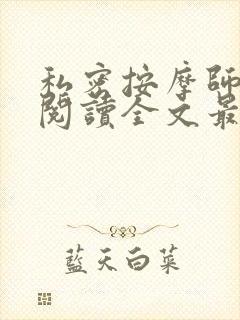 私密按摩師
閱讀全文最
藍天白菜